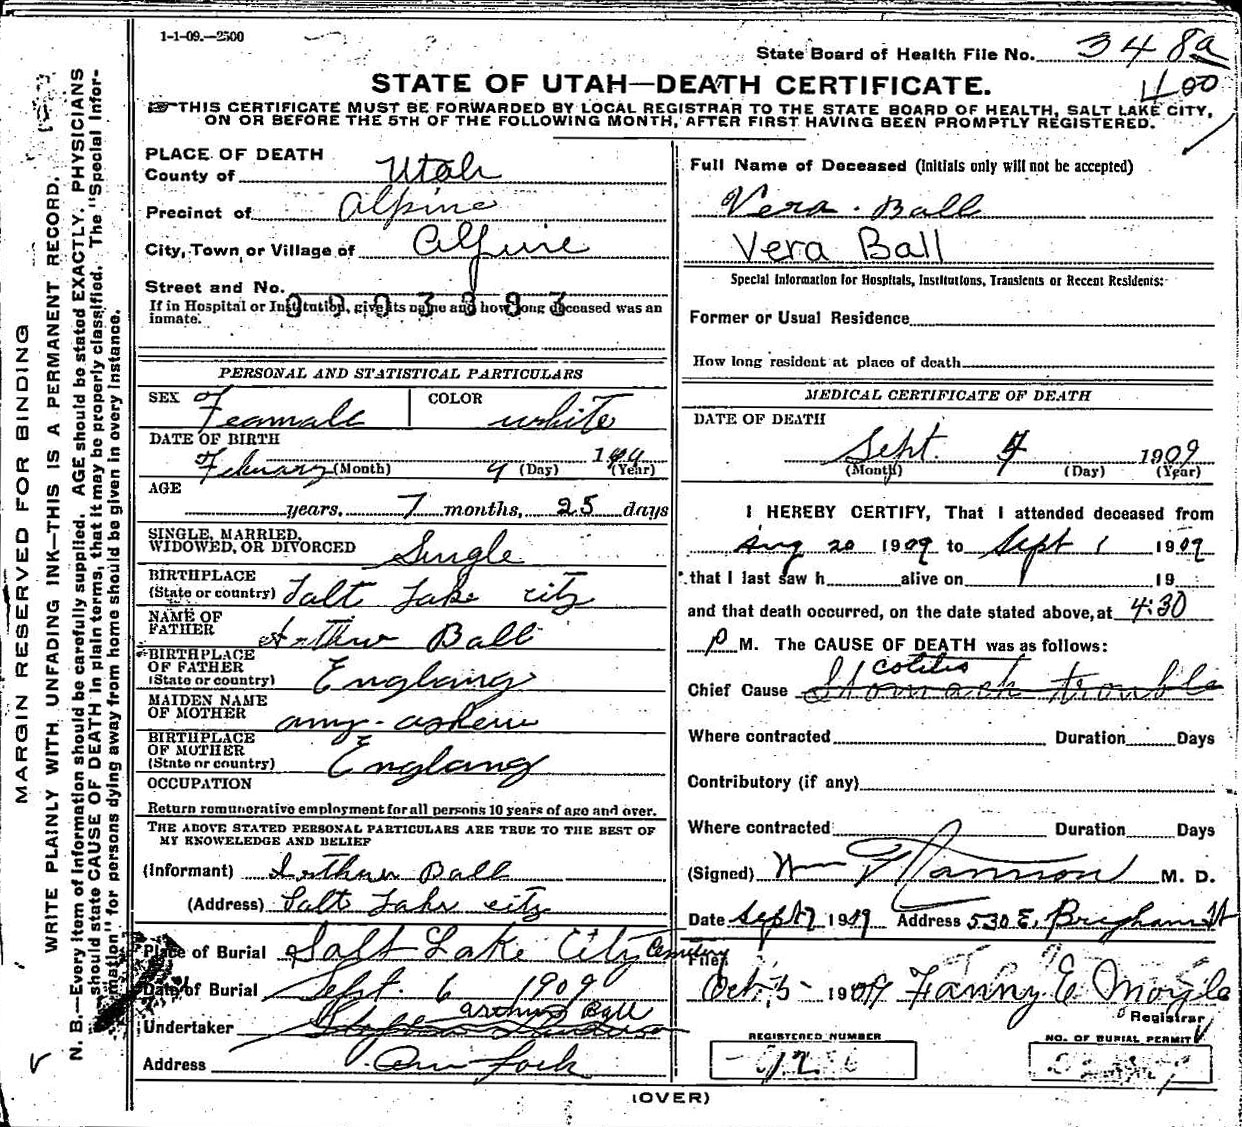 1-1-09.—2500
State Board of Health File No. 348a
400
STATE OF UTAH—DEATH CERTIFICATE.
☞THIS CERTIFICATE MUST BE FORWARDED BY LOCAL REGISTRAR TO THE STATE BOARD OF HEALTH, SALT LAKE CITY,
ON OR BEFORE THE 5TH OF THE FOLLOWING MONTH, AFTER FIRST HAVING BEEN PROMPTLY REGISTERED.
MARGIN RESERVED FOR BINDING
WRITE PLAINLY WITH UNFADING INK—THIS IS A PERMANENT RECORD.
N. B.—Every item of information should be carefully supplied. AGE should be stated EXACTLY. PHYSICIANS
should state CAUSE OF DEATH in plain terms, that it may be properly classified. The "Special Infor-
mation" for persons dying away from home should be given in every instance.
PLACE OF DEATH
County of Utah
Precinct of Alpine
City, Town or Village of Alpine
Street and No.
If in Hospital or Institution, give its name and how long deceased was an
inmate.
PERSONAL AND STATISTICAL PARTICULARS
SEX Feamale COLOR white
DATE OF BIRTH
February (Month) 9 (Day) (Year)
AGE
years, 7 months, 25 days
SINGLE, MARRIED,
WIDOWED, OR DIVORCED Single
BIRTHPLACE
(State or country) Salt Lake city
NAME OF
FATHER Arthur Ball
BIRTHPLACE
OF FATHER
(State or country) Englang
MAIDEN NAME
OF MOTHER amy-askew
BIRTHPLACE
OF MOTHER
(State or country) Englang
OCCUPATION
Return remunerative employment for all persons 10 years of age and over.
THE ABOVE STATED PERSONAL PARTICULARS ARE TRUE TO THE BEST OF
MY KNOWELEDGE AND BELIEF
(Informant) Arthur Ball
(Address) Salt Lake city
Place of Burial Salt Lake City Cemetery
Date of Burial Sept. 6 1909
arthur Ball
Undertaker
Address Am Fork
Full Name of Deceased (Initials only will not be accepted)
Vera Ball
Vera Ball
Special Information for Hospitals, Institutions, Transients or Recent Residents:
Former or Usual Residence
How long resident at place of death
MEDICAL CERTIFICATE OF DEATH
DATE OF DEATH
Sept. 4 1909
(Month) (Day) (Year)
I HEREBY CERTIFY, That I attended deceased from
Aug 20 1909 to Sept 1 1909
that I last saw h alive on 19
and that death occurred, on the date stated above, at 4:30
P M. The CAUSE OF DEATH was as follows:
colitis
Chief Cause Stomach trouble
Where contracted Duration Days
Contributory (if any)
Where contracted Duration Days
(Signed) Wm M. D.
Date Sept 7 1909 Address 530 E. Brigham St
Filed
Oct. 5- 1909 Fanny E Moyle
Registrar
REGISTERED NUMBER
NO. OF BURIAL PERMIT
(OVER)